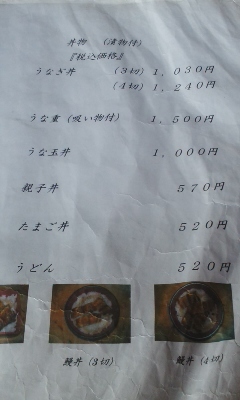 丼物 (漬物付)
『税込価格』
うなぎ丼 (3切) 1,030円
(4切) 1,240円
うな重 (吸い物付) 1,500円
うな玉丼 1,000円
親子丼 570円
たまご丼 520円
うどん 520円
鰻丼 (3切) 鰻丼 (4切)